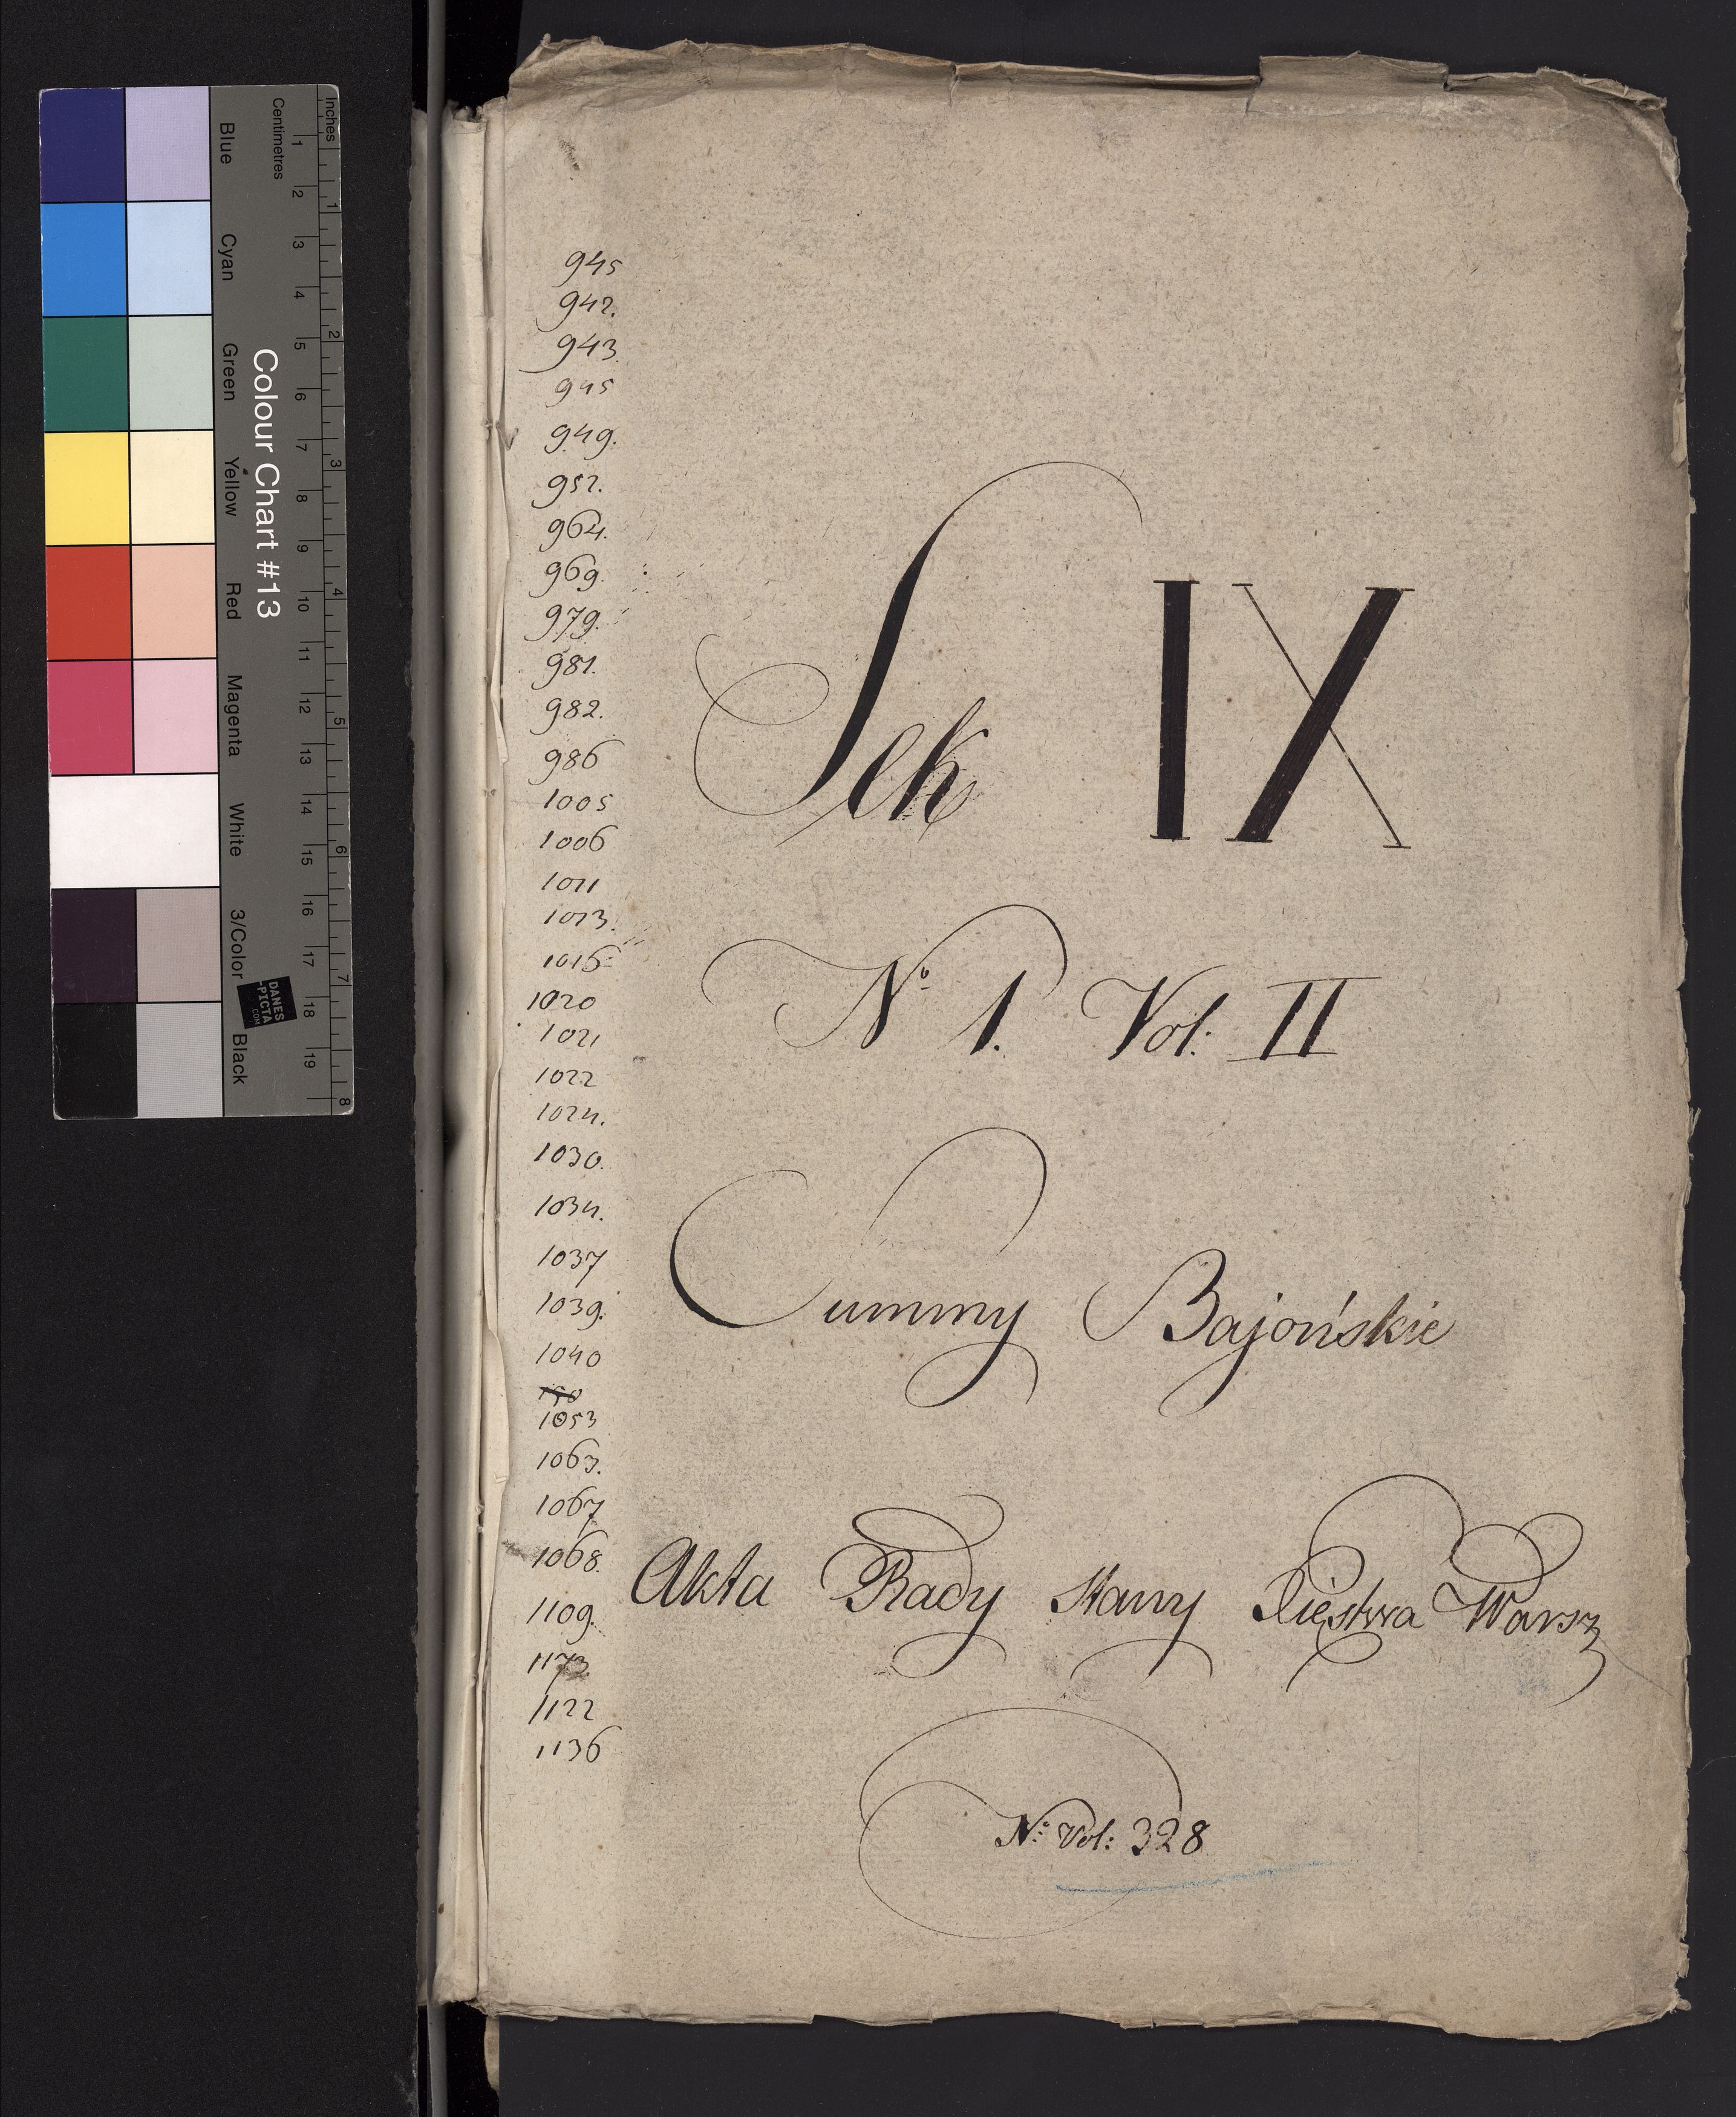 Inches
Centimetres
1 2 3 4 5 6 7 8 9 10 11 12 13 14 15 16 17 18 19
1 2 3 4 5 6 7 8
Colour Chart #13
Blue Cyan Green Yellow Red Magenta White 3/Color Black
DANES
-PICTA
.COM
945
942.
943.
945
949.
952.
964.
969.
979.
981.
982.
986
1005
1006
1011
1013.
1016
1020
1021
1022
1024.
1030.
1034.
1037
1039.
1040
1053
1063.
1067
1068.
1109.
1173
1122
1136
Sek IX
No 1. Vol: II
Summy Bajońskie
Akta Rady Stanu Xięstwa Warsz
No: Vol: 328